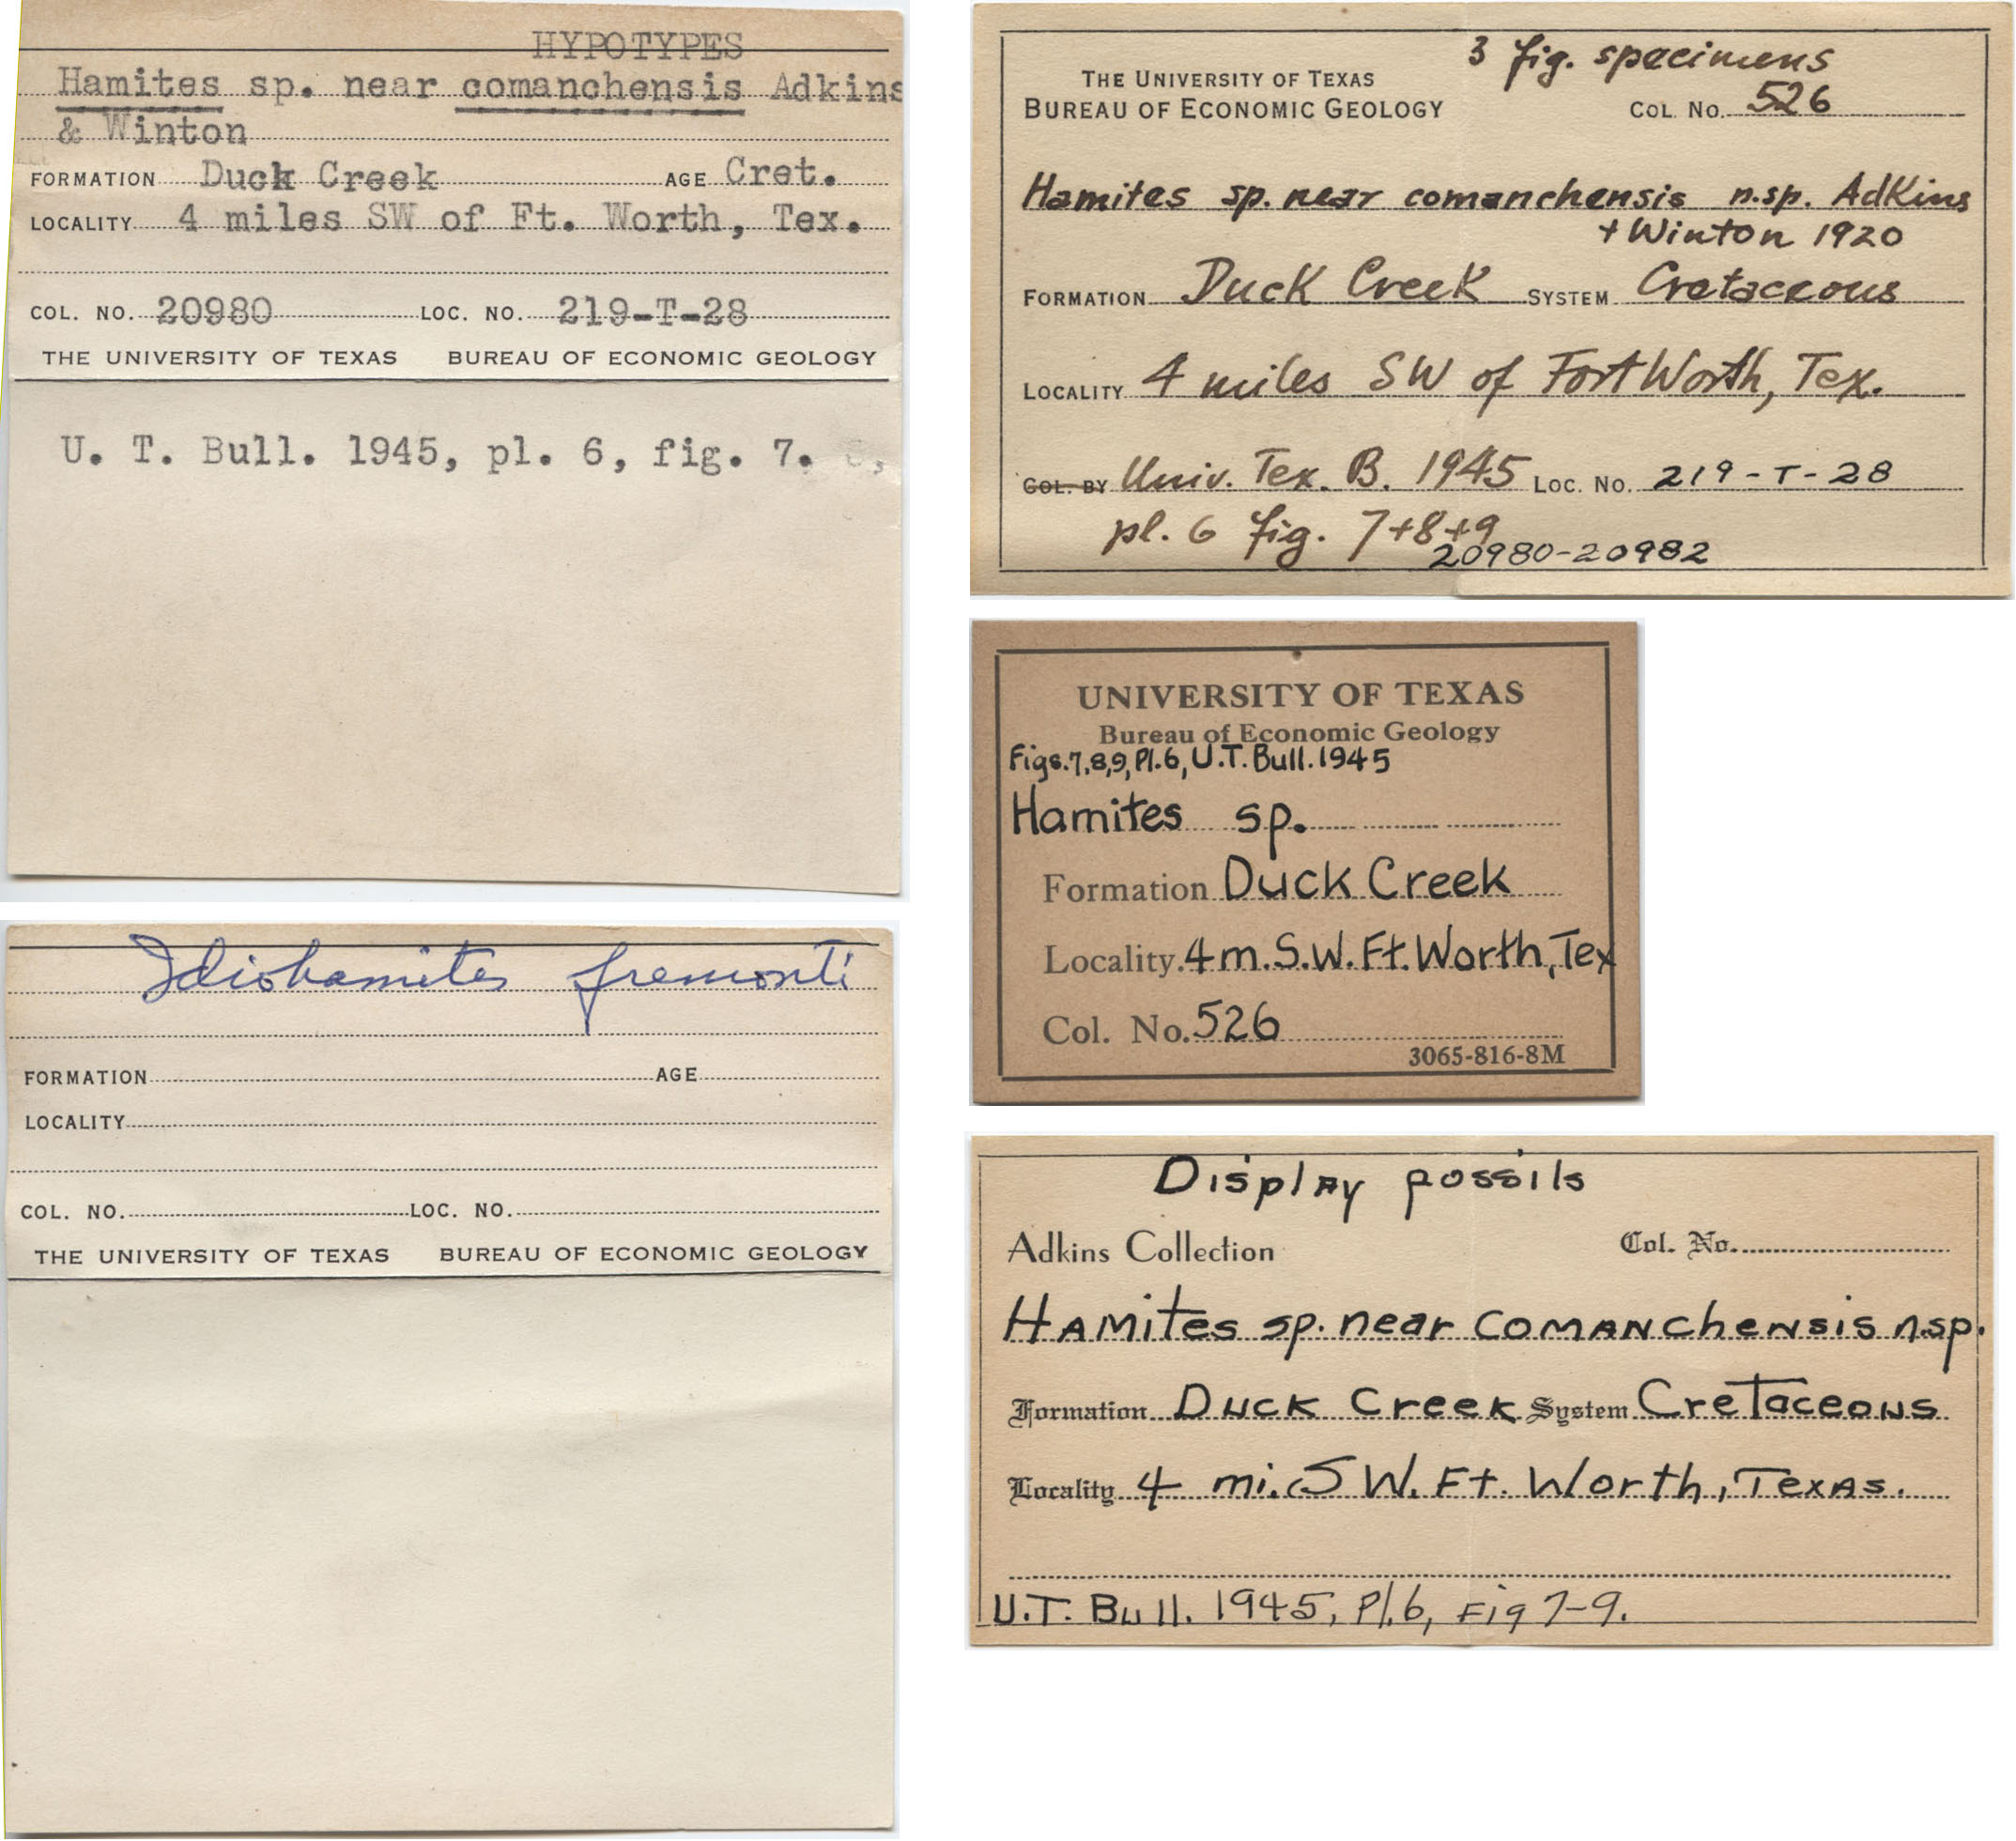 HYPOTYPES
Hamites sp. near comanchensis Adkins
& Winton
FORMATION Duck Creek AGE Cret.
LOCALITY 4 miles SW of Ft. Worth, Tex.
COL. NO. 20980 LOC. NO. 219-T-28
THE UNIVERSITY OF TEXAS BUREAU OF ECONOMIC GEOLOGY
U. T. Bull. 1945, pl. 6, fig. 7.
Idiohamites fremonti
FORMATION AGE
LOCALITY
COL. NO. LOC. NO.
THE UNIVERSITY OF TEXAS BUREAU OF ECONOMIC GEOLOGY
3 fig. specimens
THE UNIVERSITY OF TEXAS
BUREAU OF ECONOMIC GEOLOGY COL. NO. 526
Hamites sp. near comanchensis n.sp. Adkins
+ Winton 1920
FORMATION Duck Creek SYSTEM Cretaceous
LOCALITY 4 miles SW of Fort Worth, Tex.
COL. BY Univ. Tex. B. 1945 LOC. NO. 219-T-28
pl. 6 fig. 7+8+9
20980-20982
UNIVERSITY OF TEXAS
Bureau of Economic Geology
Figs. 7,8,9, Pl. 6, U.T. Bull. 1945
Hamites sp.
Formation Duck Creek
Locality 4 m. S.W. Ft. Worth, Tex
Col. No. 526
3065-816-8M
Display fossils
Adkins Collection Col. No.
Hamites sp. near comanchensis n.sp.
Formation Duck Creek System Cretaceous
Locality 4 mi. S W. Ft. Worth, Texas.
U.T. Bull. 1945, Pl. 6, Fig 7-9.